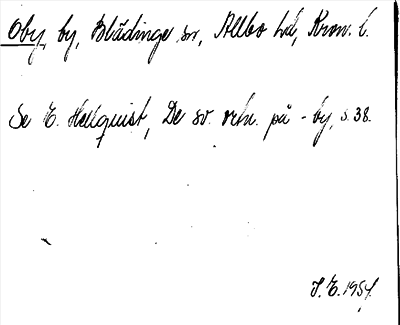 Oby, by, Blädinge sn, Allbo hd, Kron. l.
Se E. Hellquist, De sv. ortn. på -by, s. 38.
S. E. 1954.